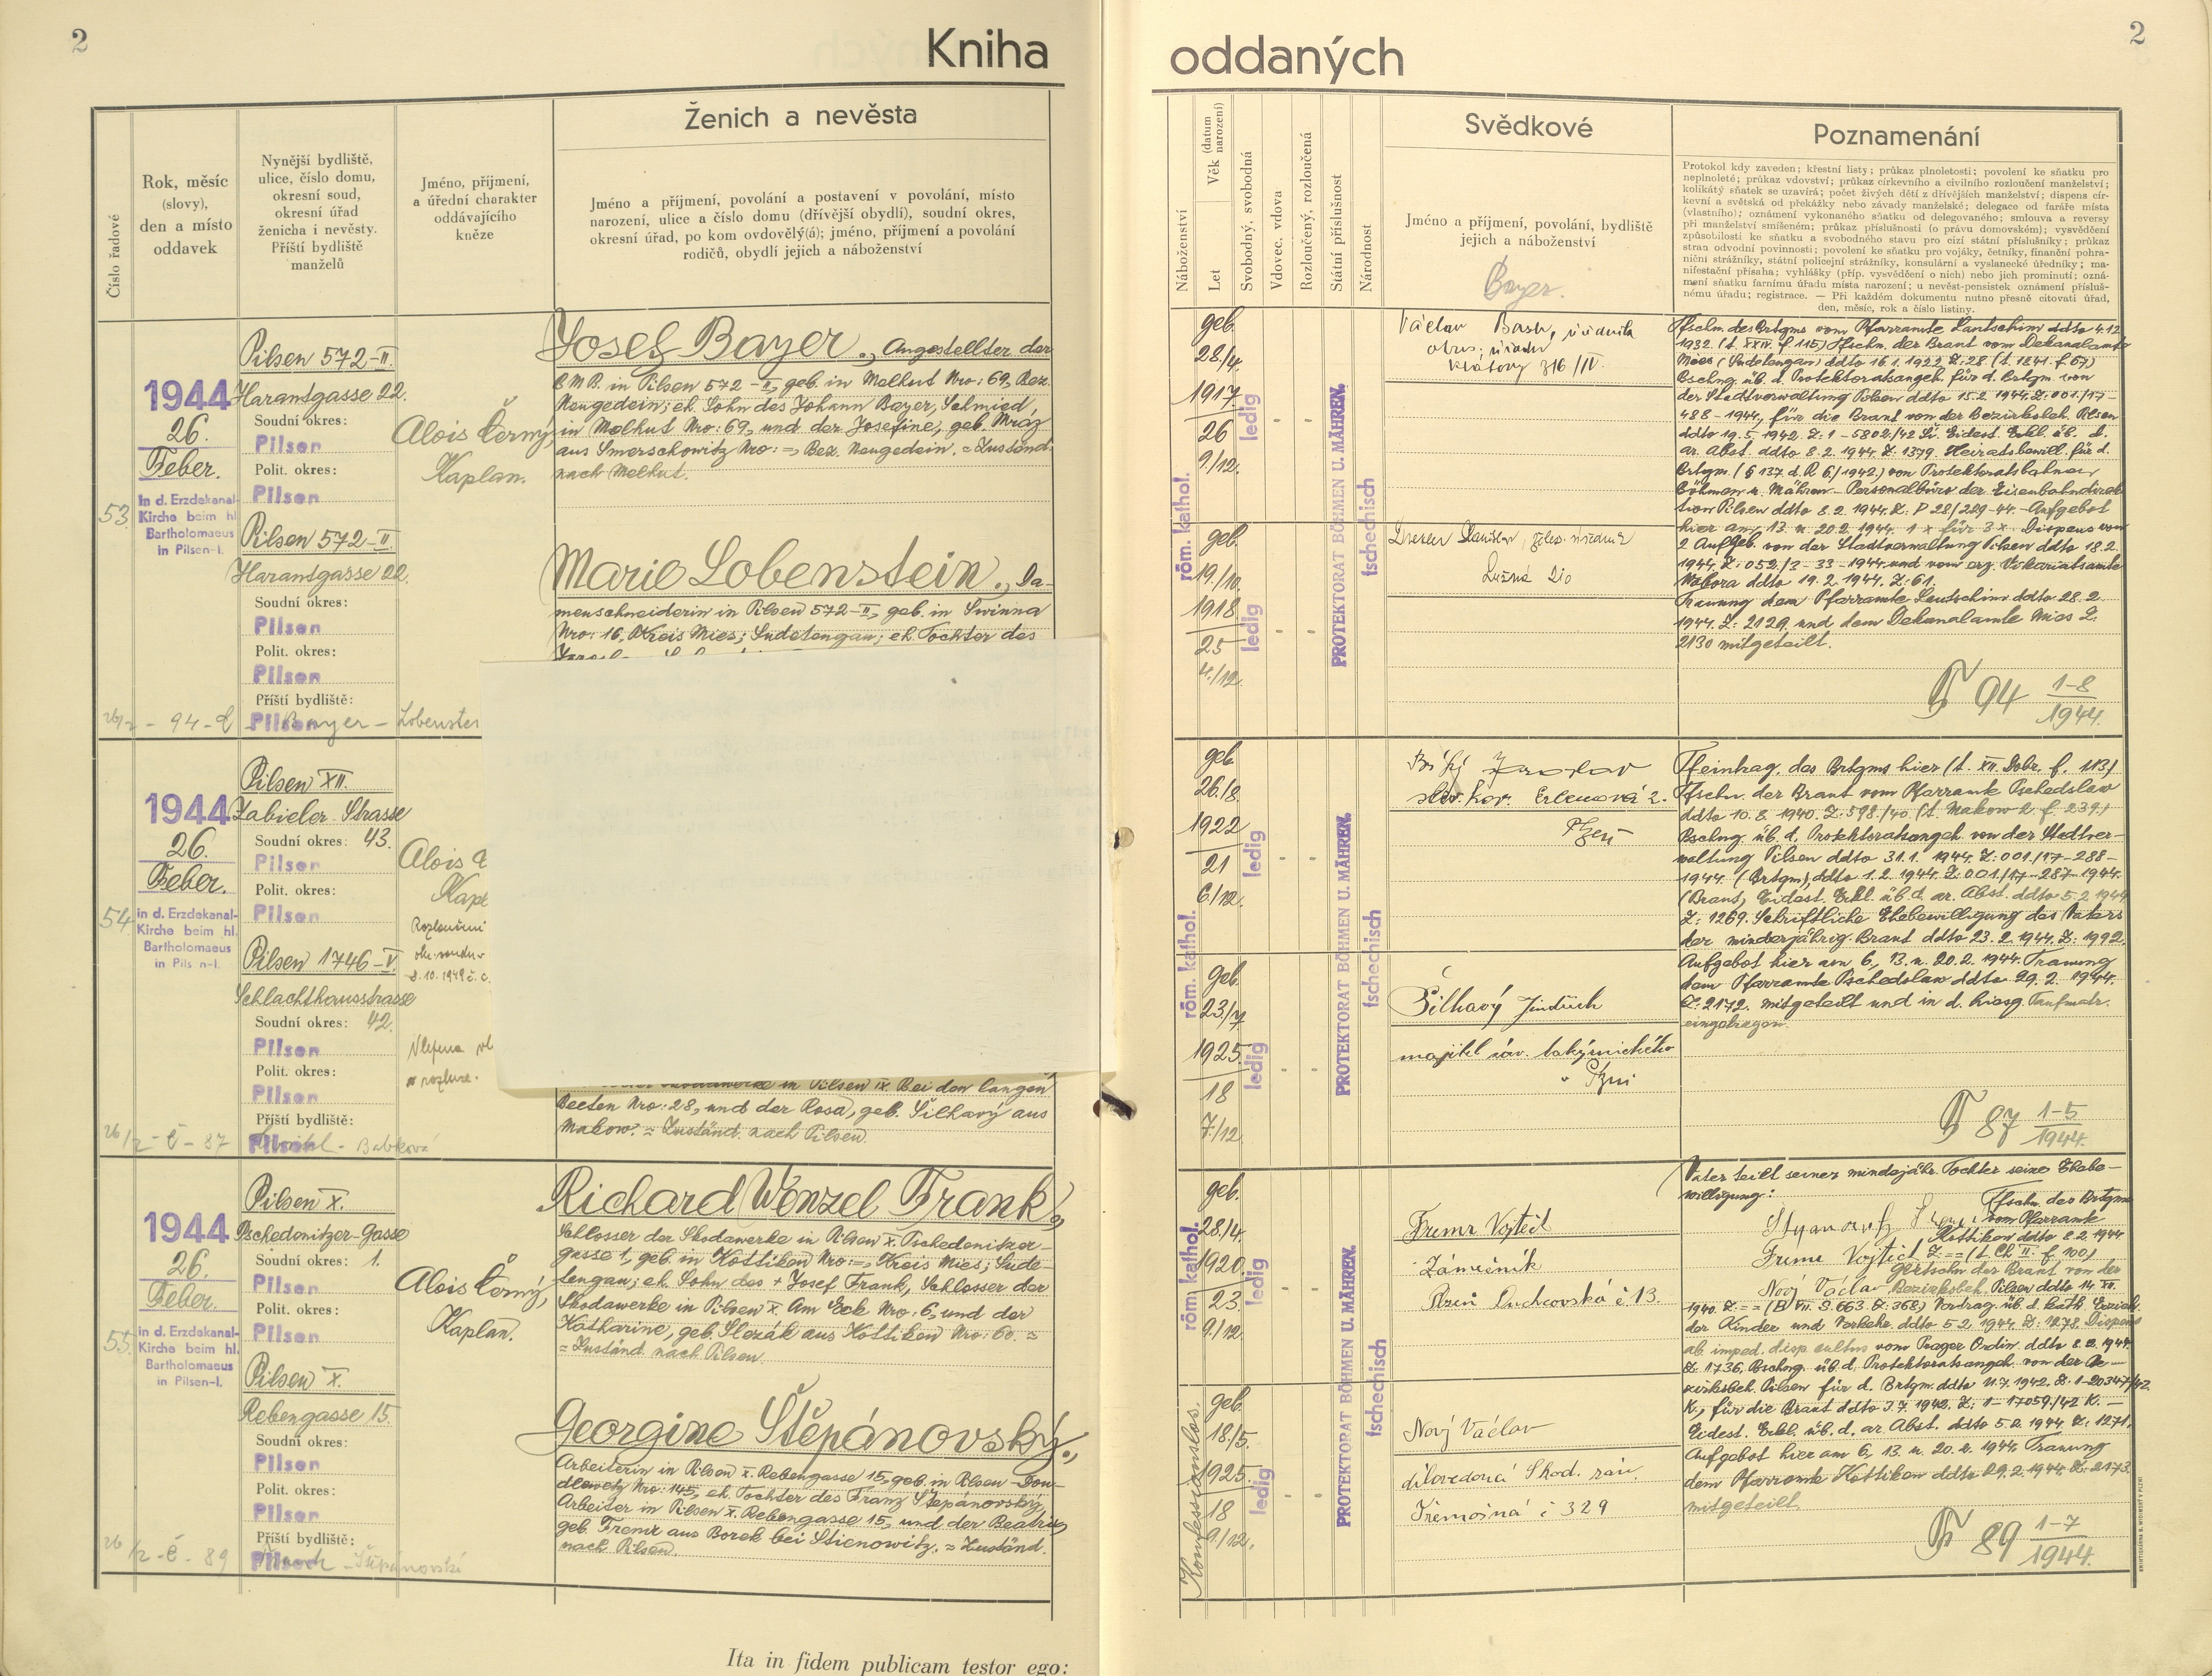 2
Kniha
Ženich a nevěsta
Číslo řadové
Rok, měsíc
(slovy),
den a místo
oddavek
Nynější bydliště,
ulice, číslo domu,
okresní soud,
okresní úřad
ženicha i nevěsty.
Příští bydliště
manželů
Jméno, příjmení,
a úřední charakter
oddávajícího
kněze
Jméno a příjmení, povolání a postavení v povolání, místo
narození, ulice a číslo domu (dřívější obydlí), soudní okres,
okresní úřad, po kom ovdověly(á); jméno, příjmení a povolání
rodičů, obydlí jejich a náboženství
53.
1944
26.
Feber.
In d. Erzdekanal-
Kirche beim hl.
Bartholomaeus
in Pilsen-I.
Pilsen 572-II.
Harantgasse 22.
Soudní okres:
Pilsen
Polit. okres:
Pilsen
Pilsen 572-II.
Harantgasse 22.
Soudní okres:
Pilsen
Polit. okres:
Pilsen
Příští bydliště:
Pilsen
- 94 - Bayer - Lobenstei
Alois Černý,
Kaplan.
Josef Bayer., Angestellter der
B.M.B. in Pilsen 572-II, geb. in Melhut Nro: 69, Bez.
Neugedein; eh. Sohn des Johann Bayer, Schmied,
in Melhut Nro: 69, und der Josefine, geb. Mraz
aus Smerschowitz Nro: =, Bez. Neugedein. = Zuständ.
nach Melhut.
Marie Lobenstein., Da-
menschneiderin in Pilsen 572-II, geb. in Swinna
Nro: 16, Kreis Mies; Sudetengau; eh. Tochter des
54.
1944
26.
Feber.
in d. Erzdekanal-
Kirche beim hl.
Bartholomaeus
in Pils n-I.
Pilsen XII.
Zabieler Strasse
Soudní okres: 43.
Pilsen
Polit. okres:
Pilsen
Pilsen 1746-V.
Schlachthausstrasse
Soudní okres: 42.
Pilsen
Polit. okres:
Pilsen
Příští bydliště:
Pilsen
- 87 - Babková
Alois
Kapl
in Pilsen IX. Bei den langen
Beeten Nro: 28, und der Rosa, geb. Šilhavý aus
Makow. = Zuständ. nach Pilsen.
55.
1944
26.
Feber.
in d. Erzdekanal-
Kirche beim hl.
Bartholomaeus
in Pilsen-I.
Pilsen X.
Pschedenitzer-Gasse
Soudní okres: 1.
Pilsen
Polit. okres:
Pilsen
Pilsen X.
Rebengasse 15.
Soudní okres:
Pilsen
Polit. okres:
Pilsen
Příští bydliště:
Pilsen
- 89 - Štěpánovski
Alois Černý,
Kaplan.
Richard Wenzel Frank,
Schlosser der Skodawerke in Pilsen X. Pschedenitzer-
gasse 1, geb. in Kottiken Nro: =, Kreis Mies; Sude-
tengau; eh. Sohn des + Josef Frank, Schlosser der
Skodawerke in Pilsen X. Am Eck Nro: 6, und der
Katharine, geb. Slezák aus Kottiken Nro: 60. =
= Zuständ. nach Pilsen.
Georgine Štěpánovský.,
Arbeiterin in Pilsen X. Rebengasse 15, geb. in Pilsen-Dou-
dlewetz Nro: 145, eh. Tochter des Franz Štěpánovský,
Arbeiter in Pilsen X. Rebengasse 15, und der Beatrix,
geb. Fremr aus Borek bei Stienowitz. = Zuständ.
nach Pilsen.
Ita in fidem publicam testor ego:
oddaných
2
Náboženství
Let
Věk (datum narození)
Svobodný, svobodná
Vdovec, vdova
Rozloučený, rozloučená
Státní příslušnost
Národnost
Svědkové
Jméno a příjmení, povolání, bydliště
jejich a náboženství
Bayer.
Poznamenání
Protokol kdy zaveden; křestní listy; průkaz plnoletosti; povolení ke sňatku pro
neplnoleté; průkaz vdovství; průkaz církevního a civilního rozloučení manželství;
kolikátý sňatek se uzavírá; počet živých dětí z dřívějších manželství; dispens cír-
kevní a světská od překážky nebo závady manželské; delegace od faráře místa
(vlastního); oznámení vykonaného sňatku od delegovaného; smlouva a reversy
při manželství smíšeném; průkaz příslušnosti (o právu domovském); vysvědčení
způsobilosti ke sňatku a svobodného stavu pro cizí státní příslušníky; průkaz
stran odvodní povinnosti; povolení ke sňatku pro vojáky, četníky, finanční pohra-
niční strážníky, státní policejní strážníky, konsulární a vyslanecké úředníky; ma-
nifestační přísaha; vyhlášky (příp. vysvědčení o nich) nebo jich prominutí; ozná-
mení sňatku farnímu úřadu místa narození; u nevěst-pensistek oznámení přísluš-
nému úřadu; registrace. — Při každém dokumentu nutno přesně citovati úřad,
den, měsíc, rok a číslo listiny.
röm. kathol.
geb.
28/4.
1917
26
9/12.
ledig
-
-
PROTEKTORAT BÖHMEN U. MÄHREN.
tschechisch
geb.
19./10.
1918
25
4./12.
ledig
-
-
Václav Bash, úředník
okres. úřadu
Klatovy 716/IV.
Stanislav
Lužná 210
Tfschn. des Brtgms vom Pfarramte Lautschim ddto 4.12.
1932. (t. XXIV. f. 115) Tfschn. der Braut vom Dekanalamte
Mies (Sudetengau) ddto 16.1.1922. Z: 28. (t. 1841. f. 67)
Bschng. üb. d. Protektoratsangeh. für d. Brtgm. von
der Stadtverwaltung Pilsen ddto 15.2.1944. Z: 001./17-
488-1944, für die Braut von der Bezirksbeh. Pilsen
ddto 19.5.1942. Z: 1-5802/42 Ši. Eidest. Erkl. üb. d.
ar. Abst. ddto 8.2.1944. Z: 1379. Heiratsbewill. für d.
Brtgm. (§ 137 d. R. 6/1942) von Protektoratsbahnen
Böhmen u. Mähren - Personalbüro der Eisenbahndirek-
tion Pilsen ddto 8.2.1944. Z: P 28/229-44. - Aufgebot
hier am 13. u. 20.2.1944. 1 x für 3 x. Dispens von
2 Aufgeb. von der Stadtverwaltung Pilsen ddto 18.2.
1944. Z: 052./3-33-1944. und vom erz. Vikariatsamte
Nebora ddto 19.2.1944. Z: 61.
Trauung dem Pfarramte Lautschim ddto 28.2.
1944. Z: 2129. und dem Dekanalamte Mies Z:
2130 mitgeteilt.
94 1-8
1944.
röm. kathol.
geb.
26./8.
1922
21
6/12.
ledig
-
-
PROTEKTORAT BÖHMEN U. MÄHREN.
tschechisch
geb.
23./7.
1925.
18
7./12.
ledig
-
-
Jaroslav
2.
Plzeň
Šilhavý Jindřich
majitel záv.
Plzni
Tfeintrag. des Brtgms hier (t. XII. Dobr. f. 113)
Tfschn. der Braut vom Pfarramte Pschedslaw
ddto 10.8.1940. Z: 598./40. (t. Makow 2. f. 239.)
Bschng. üb. d. Protektoratsangeh. von der Stadtver-
waltung Pilsen ddto 31.1.1944. Z: 001./17-288-
1944. (Brtgm), ddto 1.2.1944. Z: 001./17-287-1944.
(Braut) Eidest. Erkl. üb. d. ar. Abst. ddto 5.2.1944.
Z: 1269. Schriftliche Ehebewilligung des Vaters
der minderjährig. Braut ddto 23.2.1944. Z: 1992.
Aufgebot hier am 6., 13. u. 20.2.1944. Trauung
dem Pfarramte Pschedslaw ddto 29.2.1944.
Z: 2172. mitgeteilt und in d. hiesg. Taufmatr.
eingetragen.
87 1-5
1944.
röm. kathol.
geb.
28./4.
1920.
23
9./12.
ledig
-
-
PROTEKTORAT BÖHMEN U. MÄHREN.
tschechisch
Konfessionslos.
geb.
18./5.
1925
18
9./12.
ledig
-
-
Fremr Vojtěch
Zámečník
Plzeň Duchcovská č. 13.
Nový Václav
dílovedoucí Škod. záv.
Třemošná č 329
Vater teilt seiner minderjähr. Tochter seine Ehebe-
willigung:
Tfschn. des Brtgms
vom Pfarramte
Kottiken ddto 2.2.1944
Fremr Vojtěch Z: == (t. Ch. II. f. 100)
Gbrtschn. der Braut von der
Nový Václav Bezirksbeh. Pilsen ddto 14. XII.
1940. Z: == (B VII. S. 663. Z: 368) Vordrag. üb. d. kath. Erzieh.
der Kinder und Vorkehr. ddto 5.2.1944. Z: 1278. Dispens
ab. imped. disp. cultus vom Prager Ordin. ddto 8.2.1944.
Z: 1736. Bschng. üb. d. Protektoratsangeh. von der Be-
zirksbeh. Pilsen für d. Brtgm. ddto 11.7.1942. Z: 1-20347/42.
K., für die Braut ddto 3.7.1942. Z: 1-17059/42 K. -
Eidest. Erkl. üb. d. ar. Abst. ddto 5.2.1944. Z: 1271.
Aufgebot hier am 6., 13. u. 20.2.1944. Trauung
dem Pfarramte Kottiken ddto 29.2.1944. Z: 2173.
mitgeteilt.
89 1-7
1944.